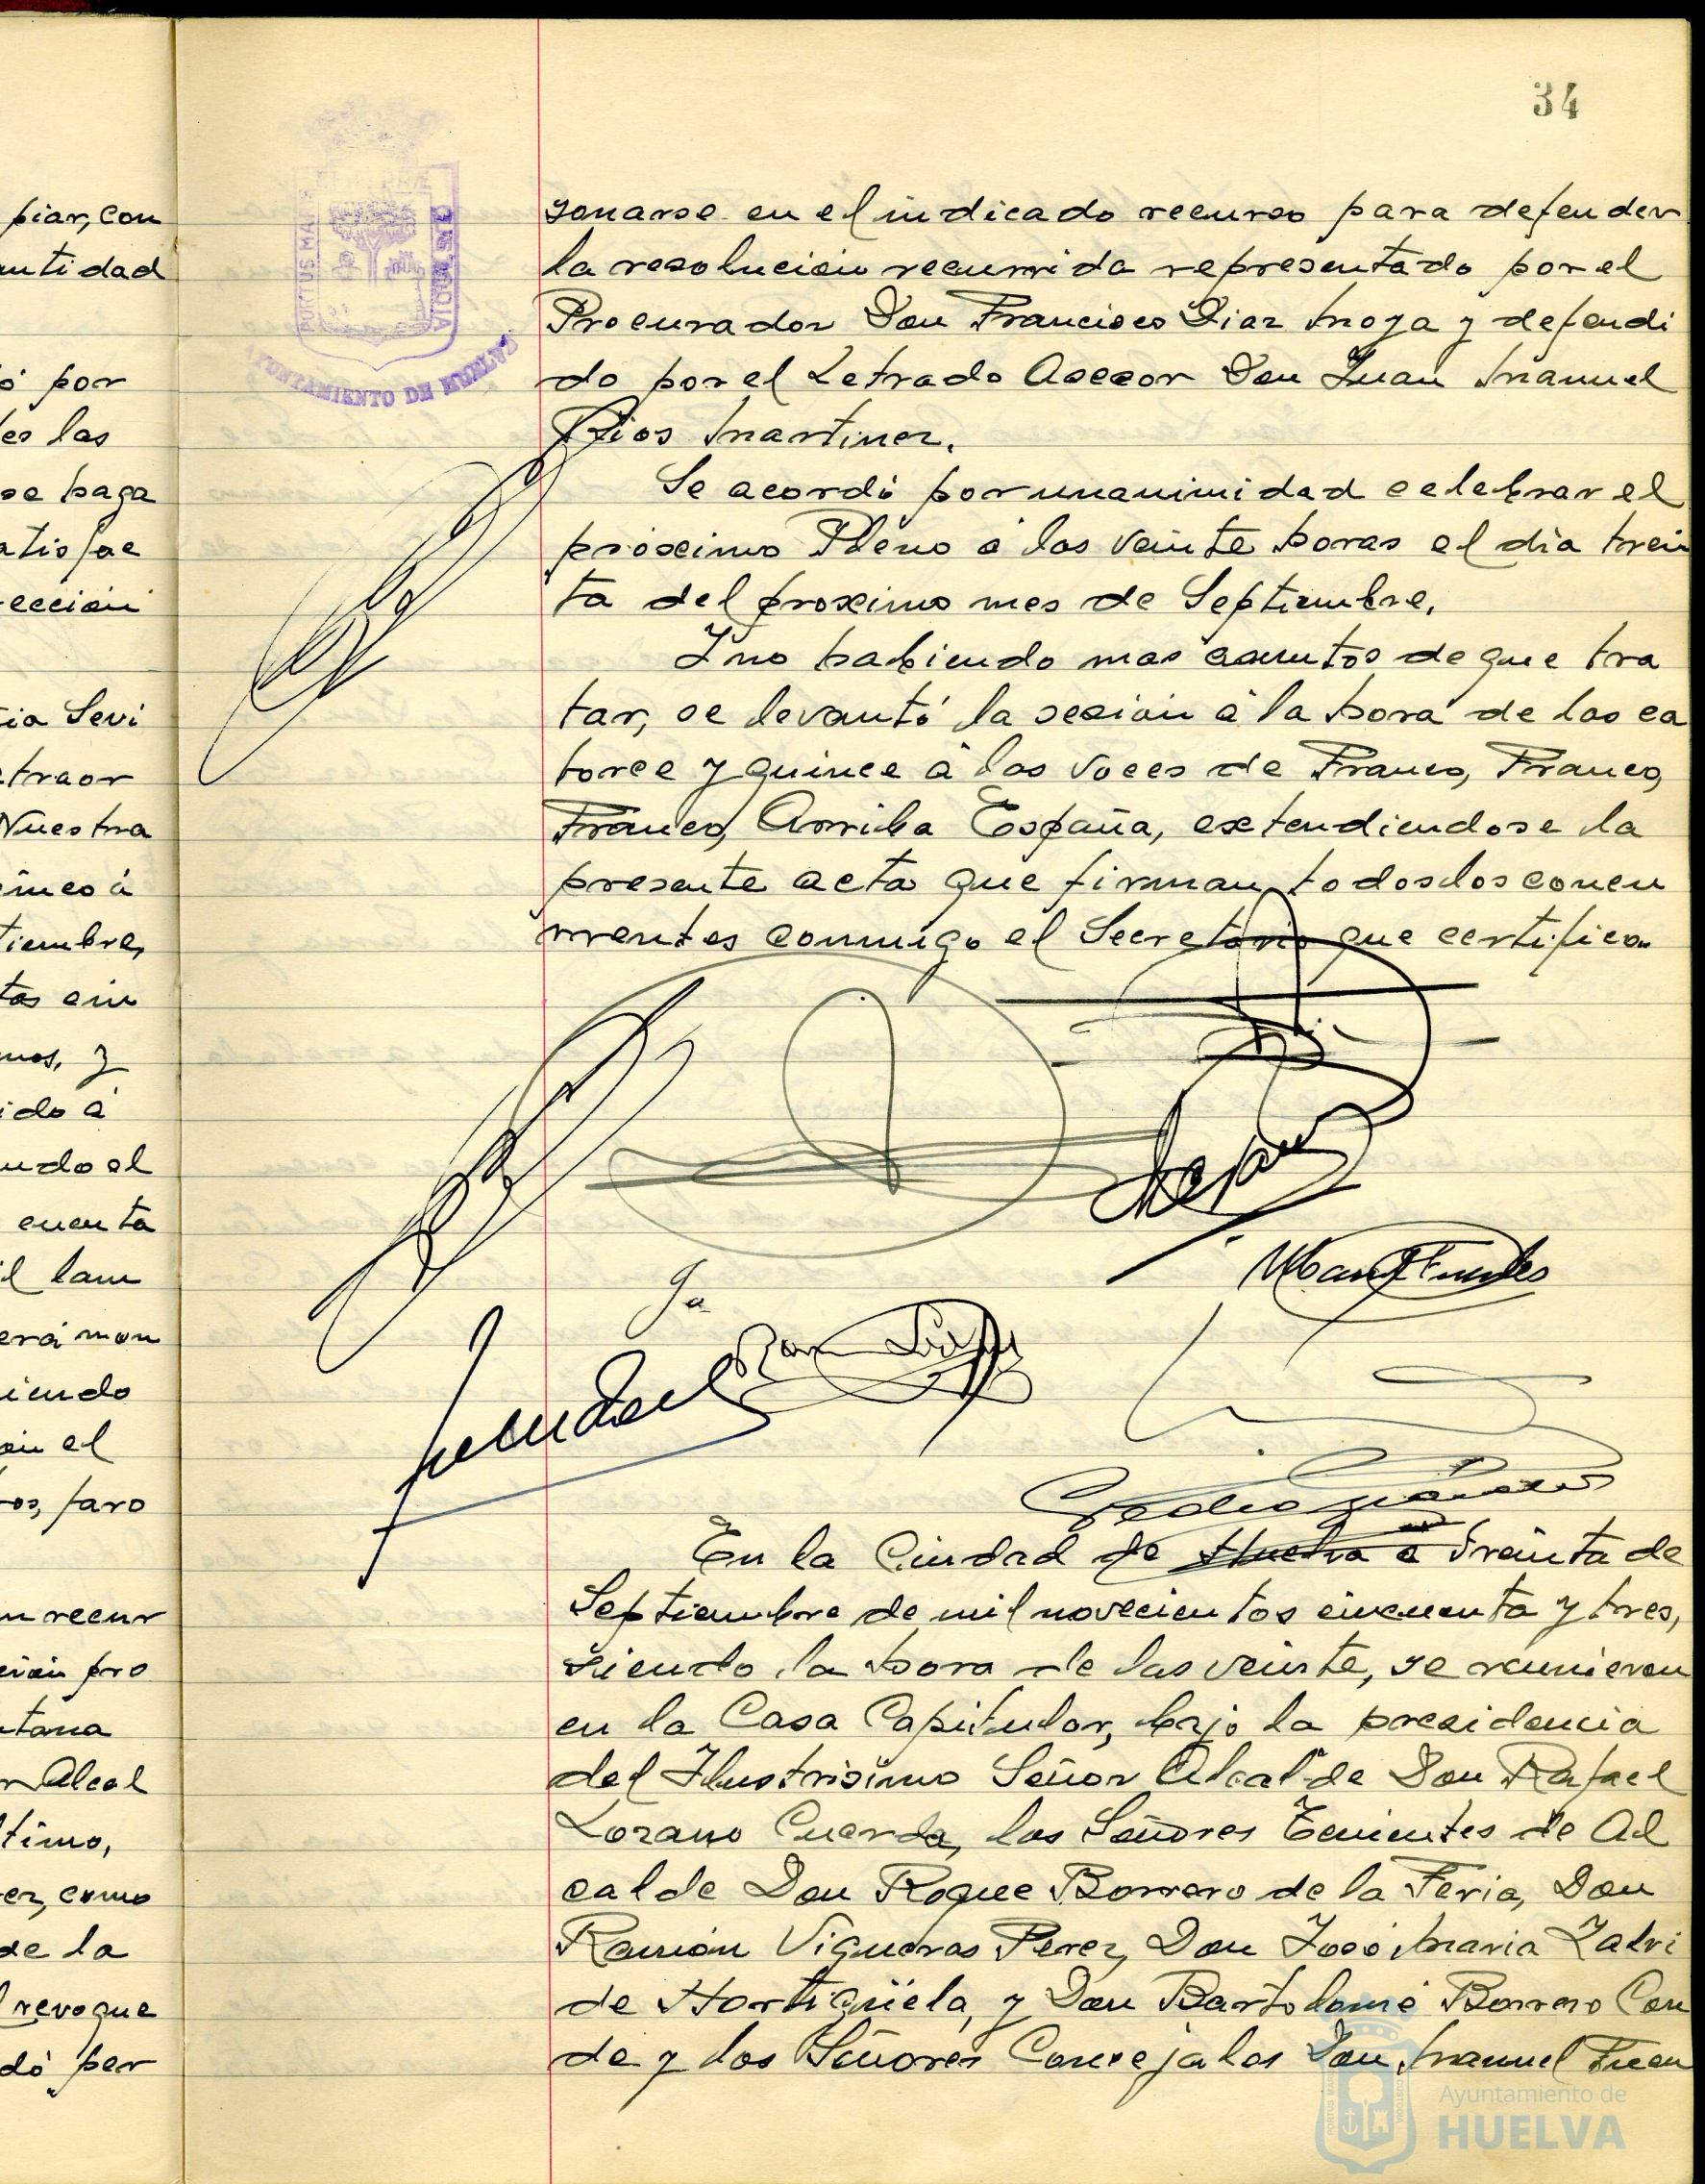 34
piar, con
antidad
ó por
es las
se haga
atisfac
ección
ia Sevi
traor
Nuestra
inco á
tiembre,
tos cin
mos, y
ido á
ndo el
cuenta
il lam
erá mon
iendo
en el
ros, faro
n recur
ción pro
tana
r Alcal
timo,
ez, como
de la
revoque
dó per
PORTUS MARIS
CUSTODIA
AYUNTAMIENTO DE HUELVA
sonarse en el indicado recurso para defender
la resolución recurrida representado por el
Procurador Don Francisco Diaz Moya y defendi
do por el Letrado Asesor Don Juan Manuel
Rios Martinez.
Se acordó por unanimidad celebrar el
próximo Pleno á las veinte horas el día trein
ta del proximo mes de Septiembre.
Y no habiendo mas asuntos de que tra
tar, se levantó la sesión á la hora de las ca
torce y quince á las voces de Franco, Franco,
Franco, Arriba España, extendiendose la
presente acta que firman todos los concu
rrentes conmigo el Secretario que certifico.
En la Ciudad de Huelva a treinta de
Septiembre de mil novecientos cincuenta y tres,
siendo la hora de las veinte, se reunieron
en la Casa Capitular, bajo la presidencia
del Ilustrisimo Señor Alcalde Don Rafael
Lozano Cuerda, los Señores Tenientes de Al
calde Don Roque Borrero de la Feria, Don
Ramón Vigueras Perez, Don José Maria Zalvi
de Hortigüela, y Don Bartolomé Borrero Con
de y los Señores Concejales Don Manuel Fuen
Ayuntamiento de
HUELVA